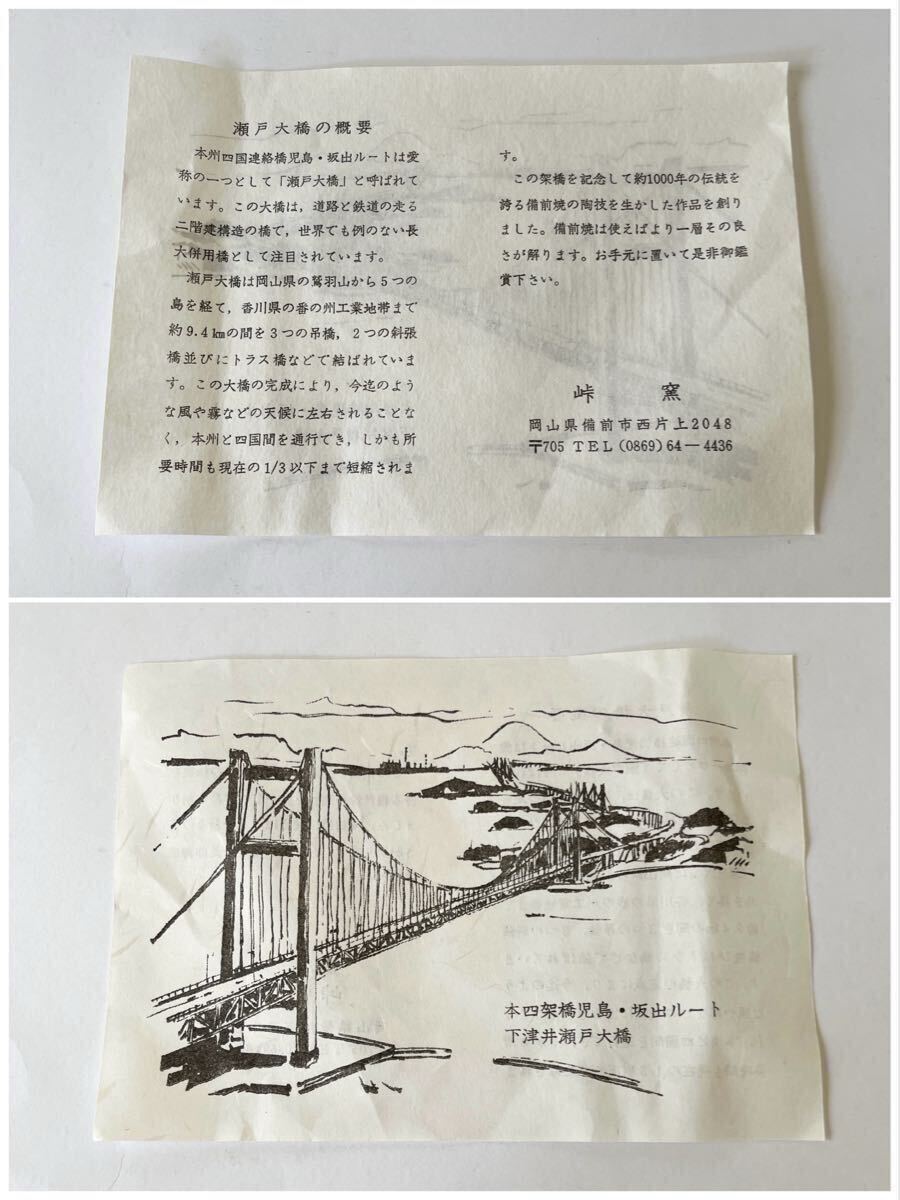 瀬戸大橋の概要
本州四国連絡橋児島・坂出ルートは愛
称の一つとして「瀬戸大橋」と呼ばれて
います。この大橋は，道路と鉄道の走る
二階建構造の橋で，世界でも例のない長
大併用橋として注目されています。
瀬戸大橋は岡山県の鷲羽山から５つの
島を経て，香川県の番の州工業地帯まで
約9.4㎞の間を３つの吊橋，２つの斜張
橋並びにトラス橋などで結ばれていま
す。この大橋の完成により，今迄のよう
な風や霧などの天候に左右されることな
く，本州と四国間を通行でき，しかも所
要時間も現在の1/3以下まで短縮されま
す。
この架橋を記念して約1000年の伝統を
誇る備前焼の陶技を生かした作品を創り
ました。備前焼は使えばより一層その良
さが解ります。お手元に置いて是非御鑑
賞下さい。
峠　窯
岡山県備前市西片上2048
〒705 TEL (0869) 64－4436
本四架橋児島・坂出ルート
下津井瀬戸大橋